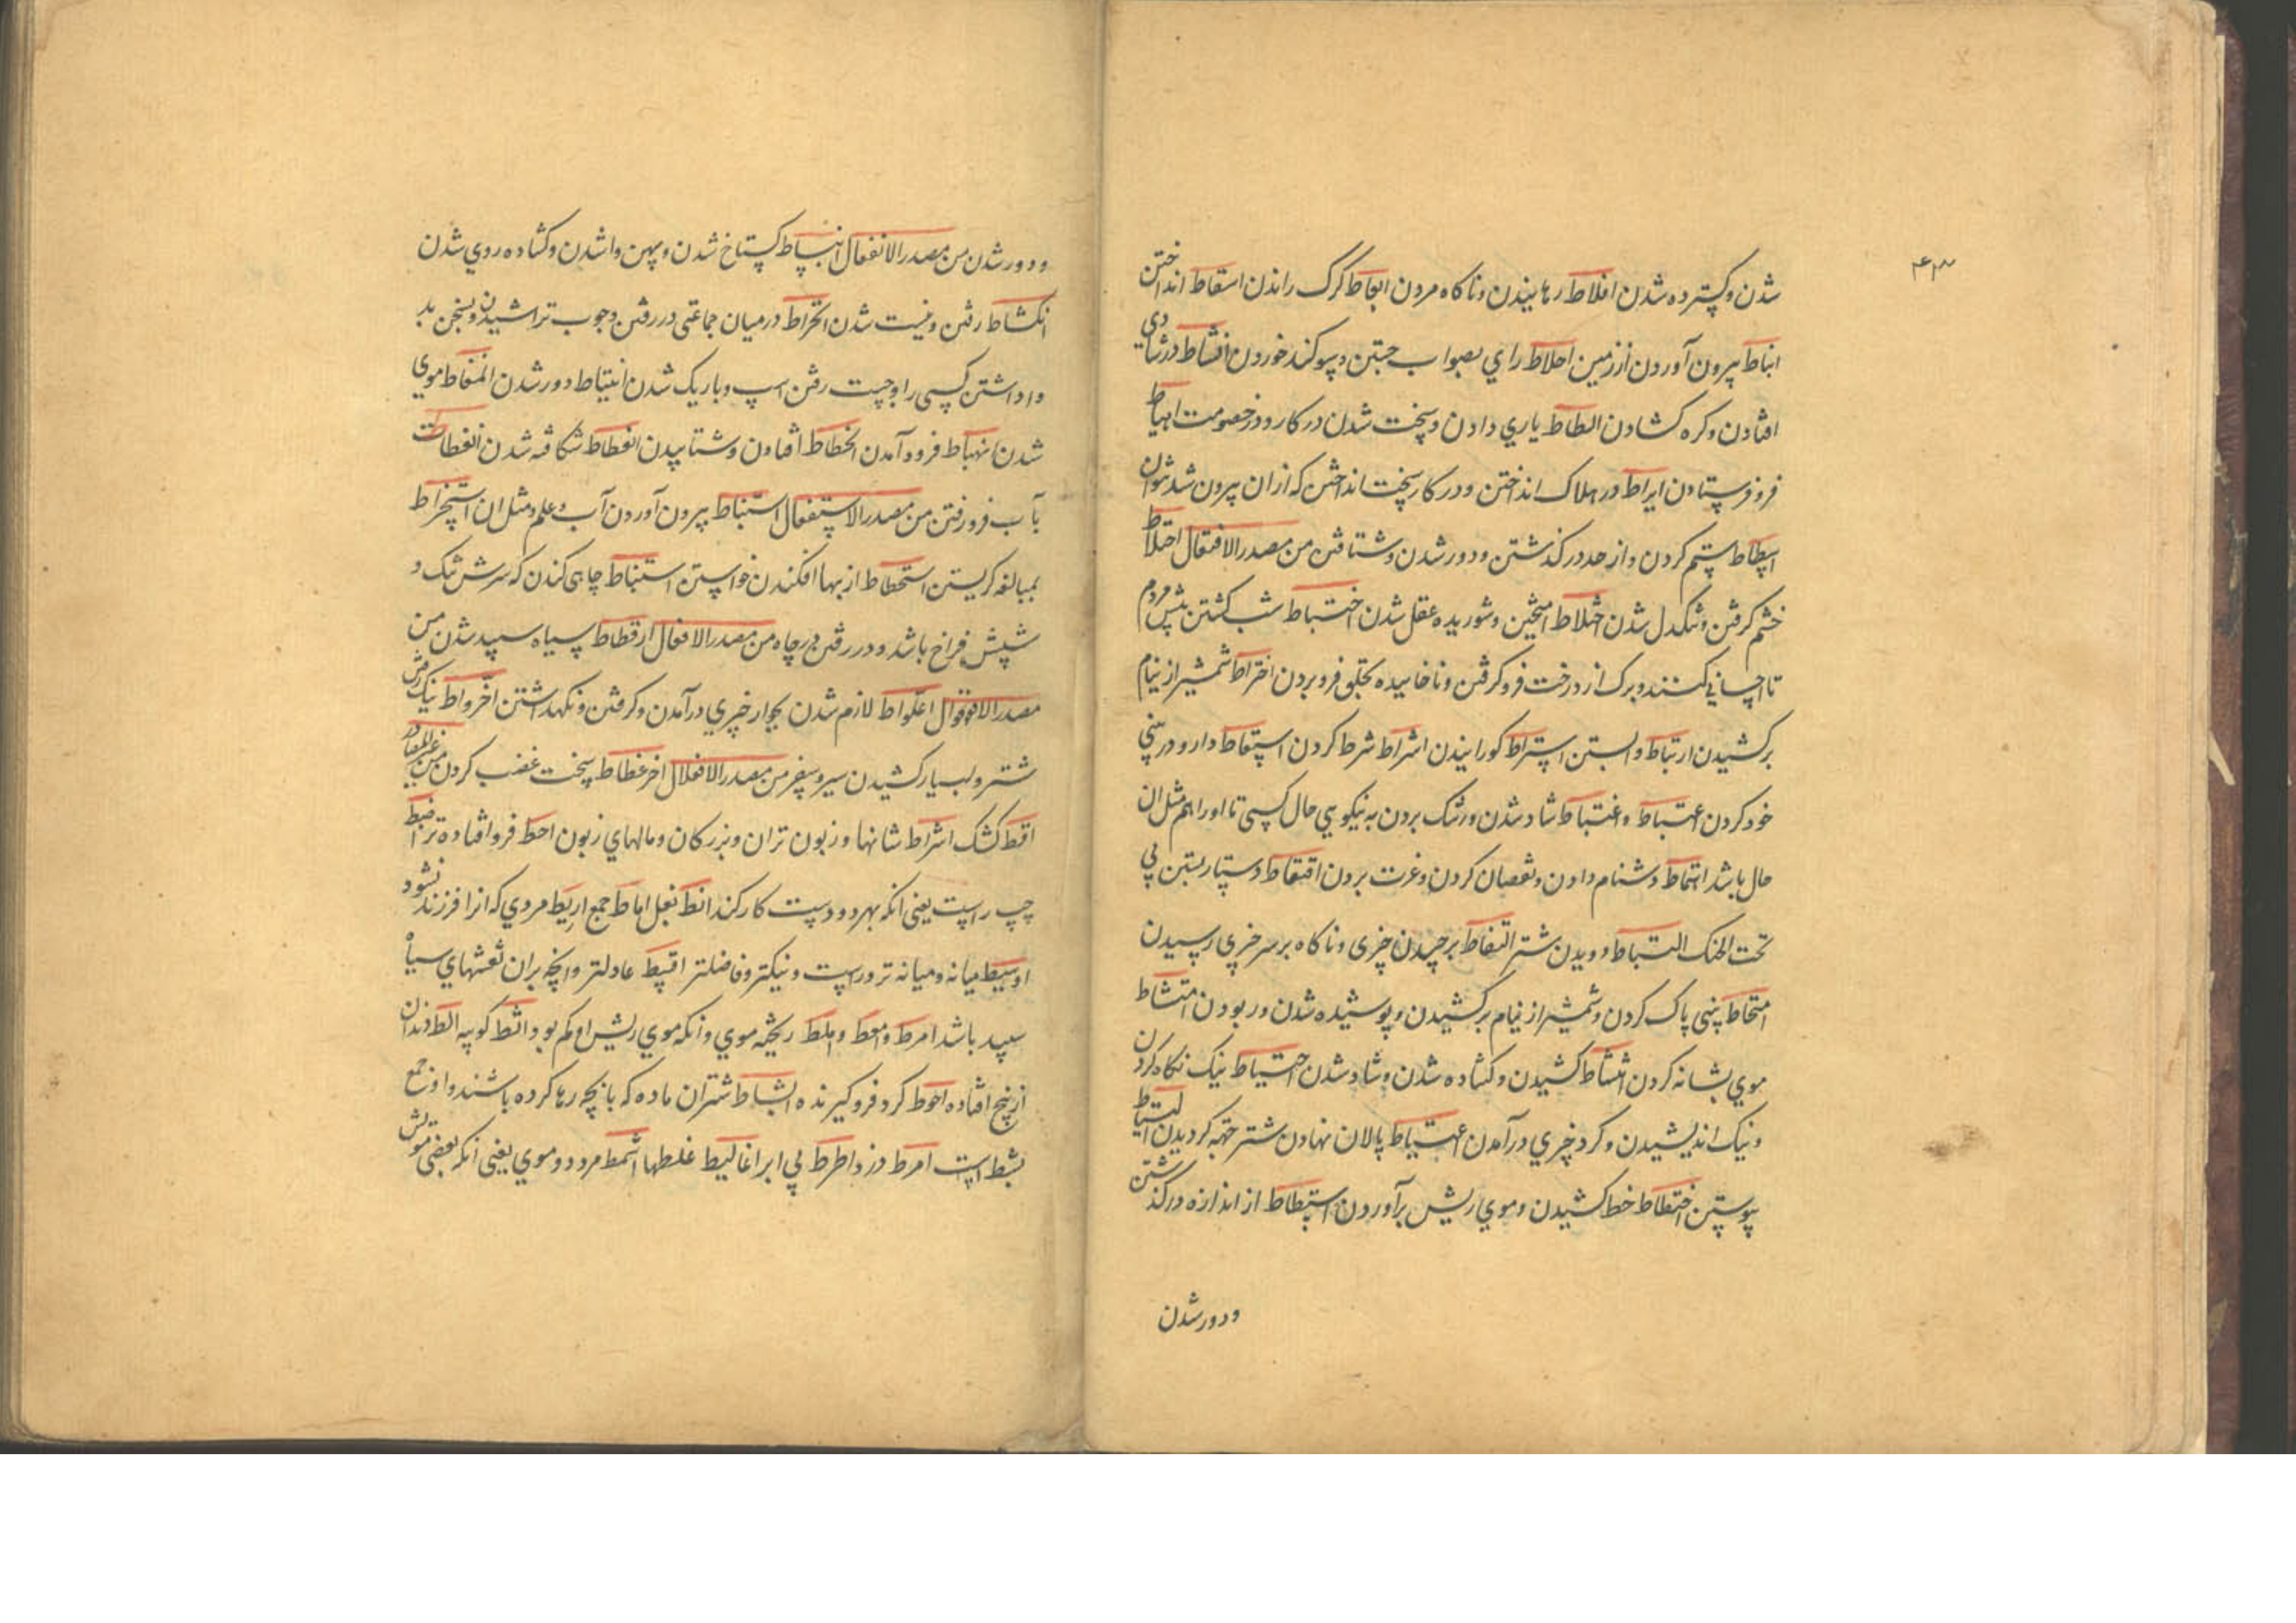 ۴۳
شدن و کپسترده شدن افلاط رهانیدن و ناکاه مردن ابعاط کرک راندن اسقاط انداختن
انباط بیرون آوردن از زمین احلاط رای بصواب جستن و سوکند خوردن انشاط در شادی
افتادن و کره کشادن الطاط یاری دادن و سخت شدن در کار و در خصومت اهباط
فرو فرستادن ایراط در هلاک انداختن و در کار سخت انداختن که از ان بیرون شد نتوان
ابطاط ستم کردن و از حد در کذشتن و دور شدن و شتافتن من مصدر الافتعال احتلاط
خشم کرفتن و تنکدل شدن اختلاط آمیختن و شوریده عقل شدن اختباط شب کشتن پیش مردم
تا احسانی کنند و برک از درخت فرو کرفتن و ناخاییده بحلق فرو بردن اختراط شمشیر از نیام
برکشیدن ارتباط وابستن استراط کوارانیدن اشتراط شرط کردن استعاط دارو در بینی
خود کردن اعتباط و اغتباط شاد شدن و رشک بردن به نیکویی حال کسی تا او را هم مثل ان
حال باشد اغتماط دشنام دادن و نقصان کردن و غرت بردن اقتعاط دستار بستن بی
تحت الحنک التباط دویدن شتر التقاط برچیدن چیزی و ناکاه بر سر چیزی رسیدن
امتخاط بینی پاک کردن و شمشیر از نیام برکشیدن و پوشیده شدن و ربودن امتشاط
موی بشانه کردن انتشاط کشیدن و کشاده شدن و شاد شدن احتیاط نیک نکاه کردن
و نیک اندیشیدن و کرد چیزی در آمدن اعتیاط پالان نهادن شتر حقه کردیدن التیاط
پیوستن اختطاط خط کشیدن و موی ریش برآوردن اشتطاط از اندازه در کذشتن
و دور شدن
و دور شدن من مصدر الانفعال انبساط کستاخ شدن و پهن وا شدن و کشاده روی شدن
انکشاط رفتن و نیست شدن انخراط در میان جماعتی در رفتن و چوب تراشیدن و بسخن بد
واداشتن کسی را و چست رفتن اسپ و باریک شدن انتیاط دور شدن انمغاط موی
شدن انهباط فرود آمدن انحطاط افتادن و شتابیدن انعطاط شکافته شدن انغطاط
بآب فرو رفتن من مصدر الاستفعال استنباط بیرون آوردن آب و علم و مثل ان استخراط
بمبالغه کریستن استحطاط از بها افکندن خواستن استنباط چاهی کندن که سرش تنک و
شپش فراخ باشد و در رفتن در چاه من مصدر الافعلال ارقطاط سیاه سپید شدن من
مصدر الافعوال اعلواط لازم شدن بجوار چیزی در آمدن و کرفتن و نکهداشتن اخرواط نیک رفتن
شتر و بسیار کشیدن سیر و سفر من مصدر الافعلال اخرغطاط سخت غضب کردن من غیر المصادر
اقط کشک اشراط نشانها و زبون تران و بزرکان و مالهای زبون احط فرو افتاده تر اضبط
چپ راست یعنی انکه بهر دو دست کار کند انط نعل اماط جمع اریط مردی که انرا فرزند نشود
اوسط میانه و میانه تر و راست و نیکتر و فاضلتر اقسط عادلتر و انچه بران نقشهای سیاه
سپید باشد امرط و امعط و املط ریخته موی و انکه موی ریش او کم بود اثط کوسه الط دندان
از بیخ افتاده احوط کرد فروکیرنده البساط شتران ماده که با بچه رها کرده باشند و او جمع
بسط است امرط دزد اطرط بی ابرا اغالیط غلطها اشمط مرد دو موی یعنی انکه بعضی مویش